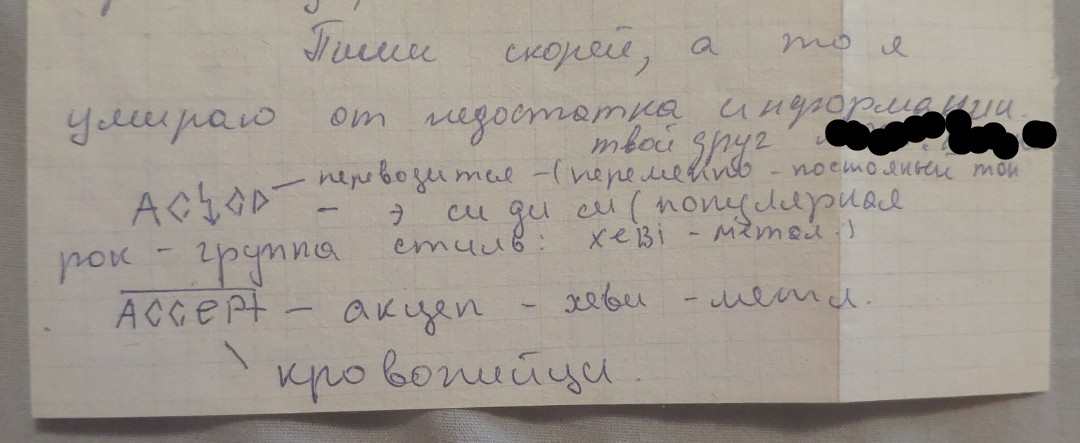 Пиши скорей, а то я
умираю от недостатка информации.
твой друг
— переводится - (переменно - постоянный ток
AC⚡CD — э си ди си (популярная
рок - группа стиль: хеві - метал.)
ACCEPT — акцеп - хеви - метл.
\ кровопийцы.